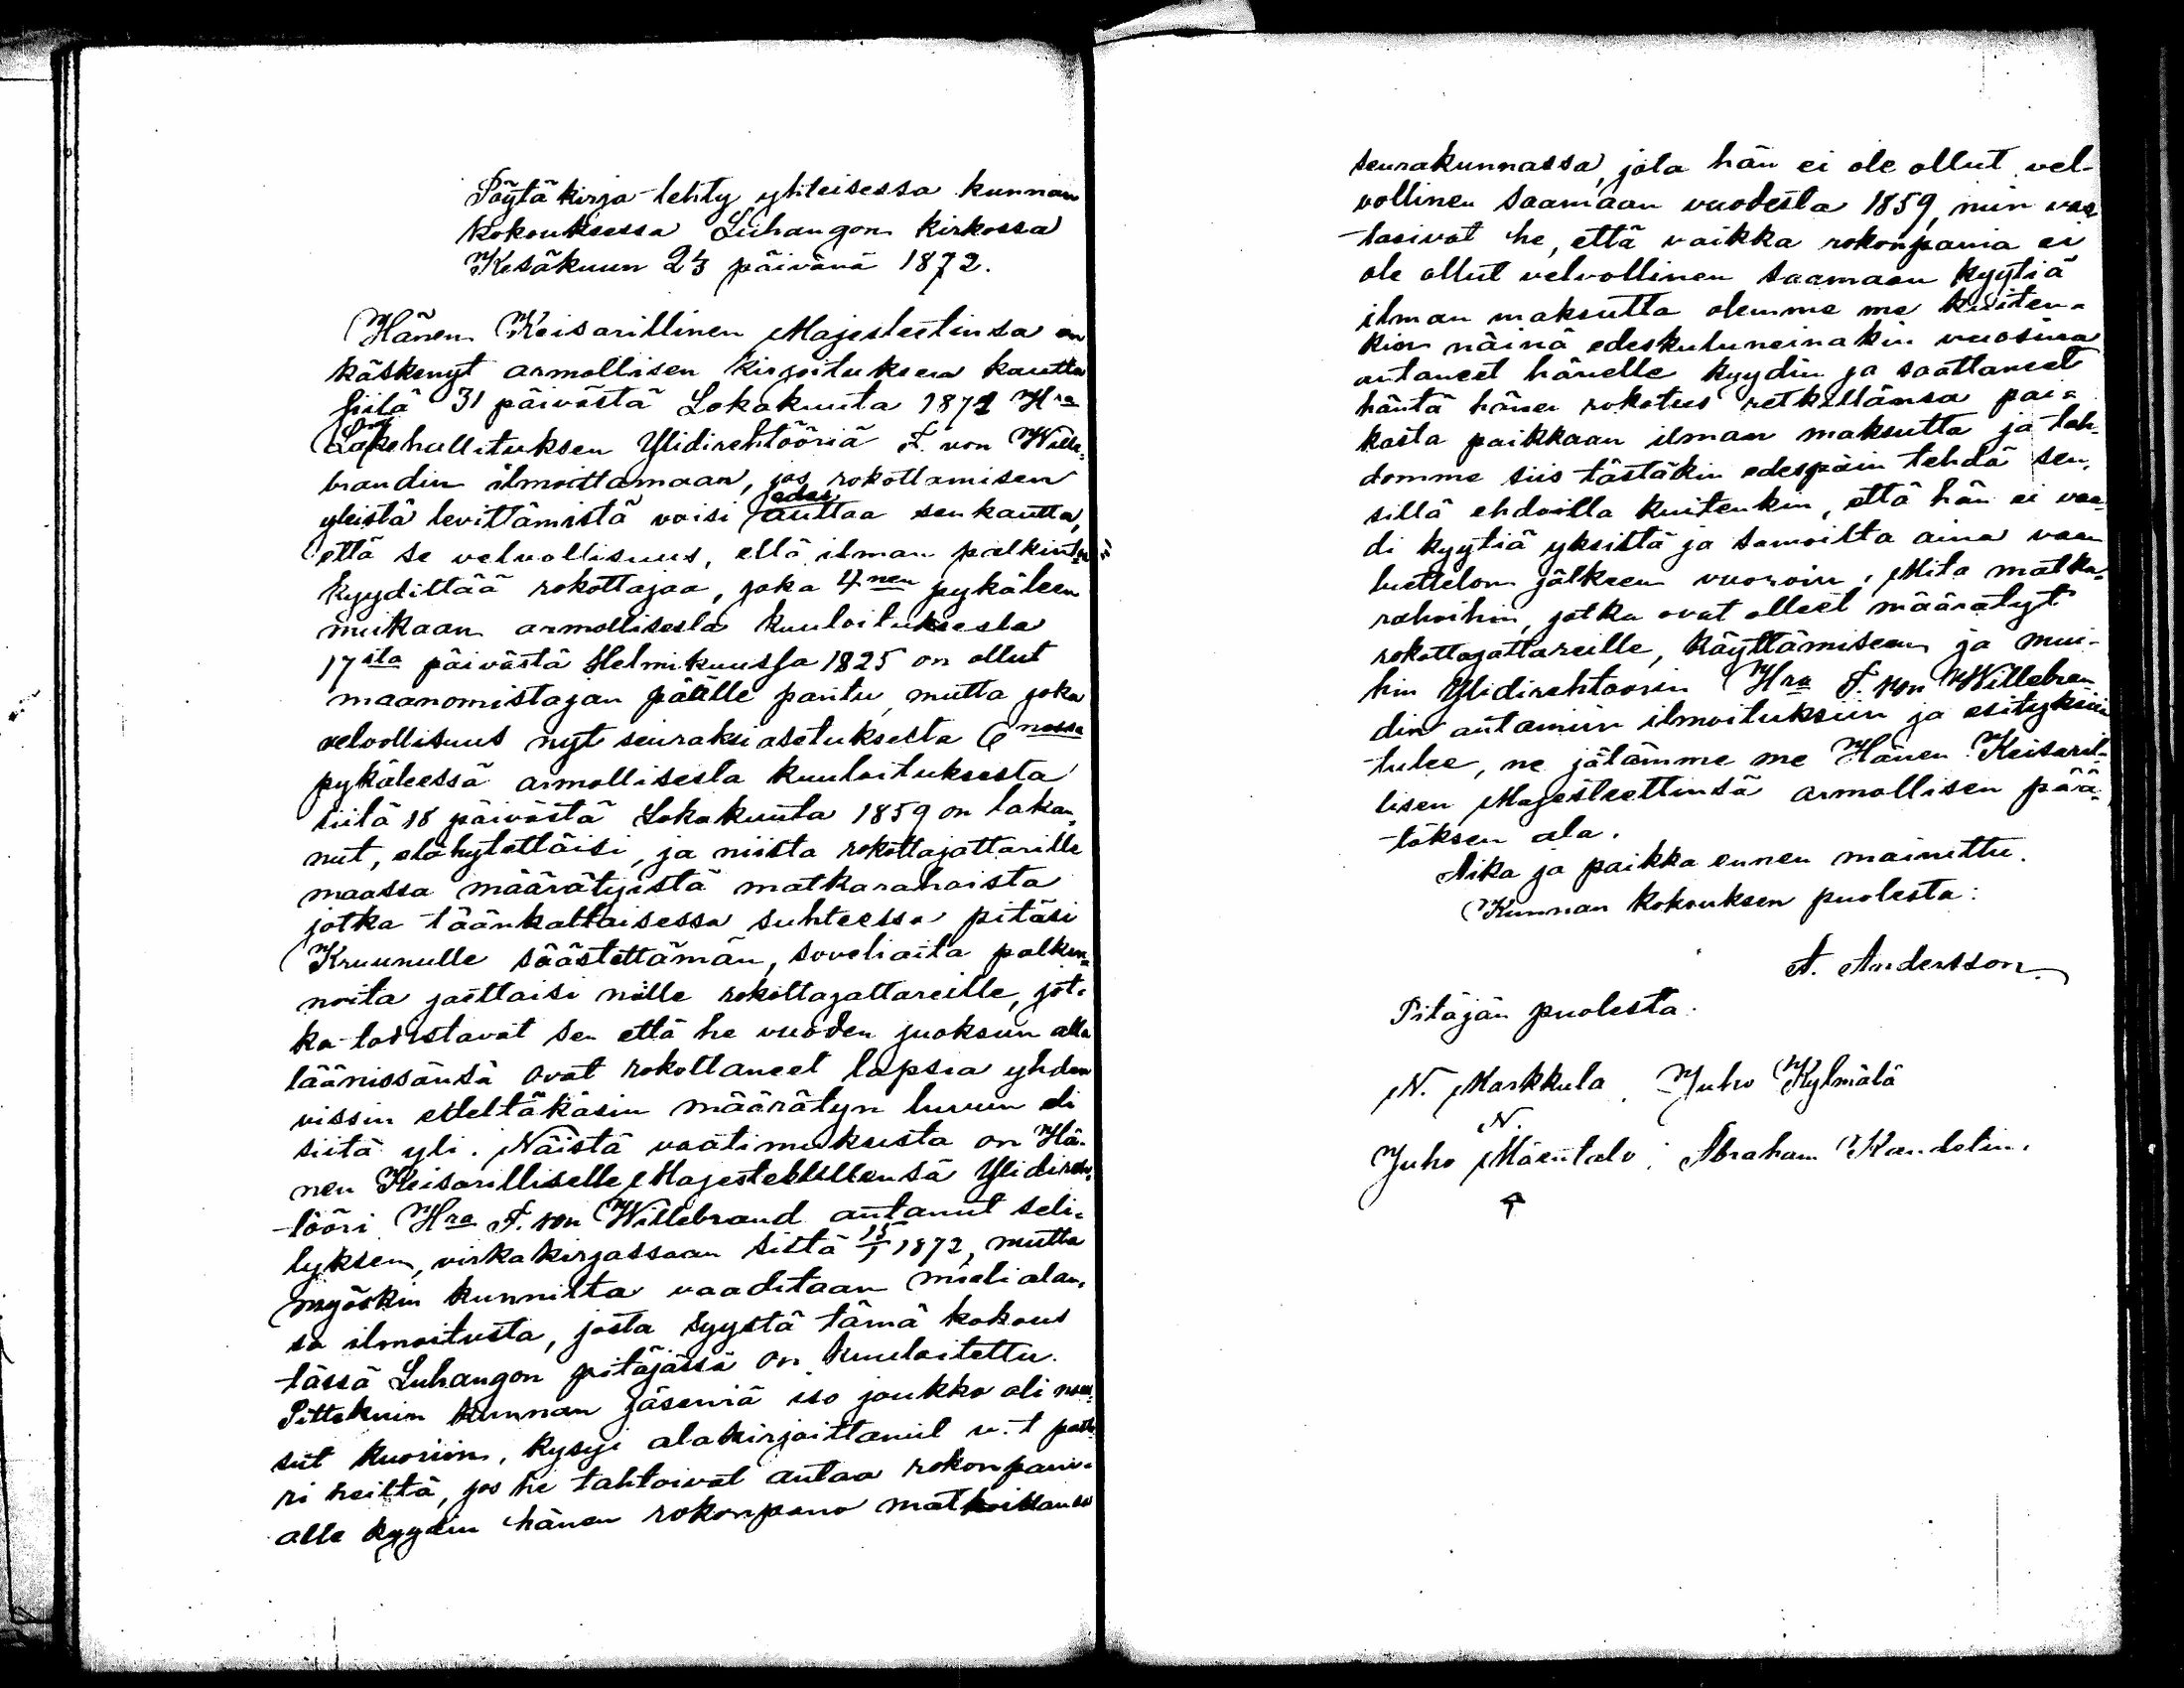 Pöytäkirja tehty yhteisessa kunnan
kokouksessa Luhangon kirkossa
Kesäkuun 23 päivänä 1872.
Hänen Keisarillinen Majesteetinsa on
käskenyt armollisen kirjoituksen kautta
siitä 31 päivästä Lokakuuta 1871 Hra
Lääkehallituksen Ylidirehtööriä F. von Wille-
brandin ilmoittamaan, jos rokottamisen
yleistä levittämistä voisi edes auttaa sen kautta,
että se velvollisuus, että ilman palkintoa
kyydittää rokottajaa, joka 4nen pykäleen
mukaan armollisesta kuuloituksesta
17sta päivästä Helmikuussa 1825 on ollut
maanomistajan päälle pantu, mutta joka
velvollisuus nyt seuraksi asetuksesta 6nessa
pykäleessä armollisesta kuuloituksesta
siitä 18 päivästä Lokakuuta 1859 on lakan-
nut, elähytettäisi, ja niista rokottajattarille
maassa määrätyistä matkarahoista
jotka täänkaltaisessa suhteessa pitäsi
Kruunulle säästettämän, soveliaita palkin-
noita jaettaisi niille rokottajattareille, jot-
ka todistavat sen että he vuoden juoksun alla
läänissänsä ovat rokottaneet lapsia yhden
vissin edeltäkäsin määrätyn luvun eli
siitä yli. Näistä vaatimuksista on Hä-
nen Keisarilliselle Majestetillensä Ylidireh-
tööri Hra F. von Willebrand antanut seli-
tyksen, virkakirjassaan siitä 15/1 1872, mutta
myöskin kunnilta vaaditaan mielialan-
sa ilmoitusta, josta syystä tämä kokous
tässä Luhangon pitäjässä on kuuloitettu.
Sittekuin kunnan jäseniä iso joukko oli nou-
sut kuoriin, kysyi alakirjoittanut v. t. pasto-
ri heiltä, jos he tahtoivat antaa rokonpani-
alle kyydin hänen rokonpano matkoillansa
seurakunnassa, jota hän ei ole ollut vel-
vollinen saamaan vuodesta 1859, niin vas-
tasivat he, että vaikka rokonpania ei
ole ollut velvollinen saamaan kyytiä
ilman maksutta olemme me kuiten-
kin näinä edeskuluneinakin vuosina
antaneet hänelle kyydin ja saattaneet
häntä hänen rokotus retkillänsa pai-
kasta paikkaan ilman maksutta ja tah-
domme siis tästäkin edespäin tehdä sen,
sillä ehdoilla kuitenkin, että hän ei vaa-
di kyytiä yksiltä ja samoilta aina vaan
luettelon jälkeen vuoroin. Mita matka-
rahoihin, jotka ovat olleet määrätyt
rokottajattareille, käyttämiseen ja mui-
hin Ylidirehtoorin Hra F. von Willebran-
din antamiin ilmoituksiin ja esityksiin
tulee, ne jätämme me Hänen Keisaril-
lisen Majesteettinsä armollisen pää-
töksen ala.
Aika ja paikka ennen mainittu.
Kunnan kokouksen puolesta:
A. Andersson
Pitäjän puolesta:
N. Markkula. Juho Kylmälä
N.
Juho Mäentalo. Abraham Kandolin.